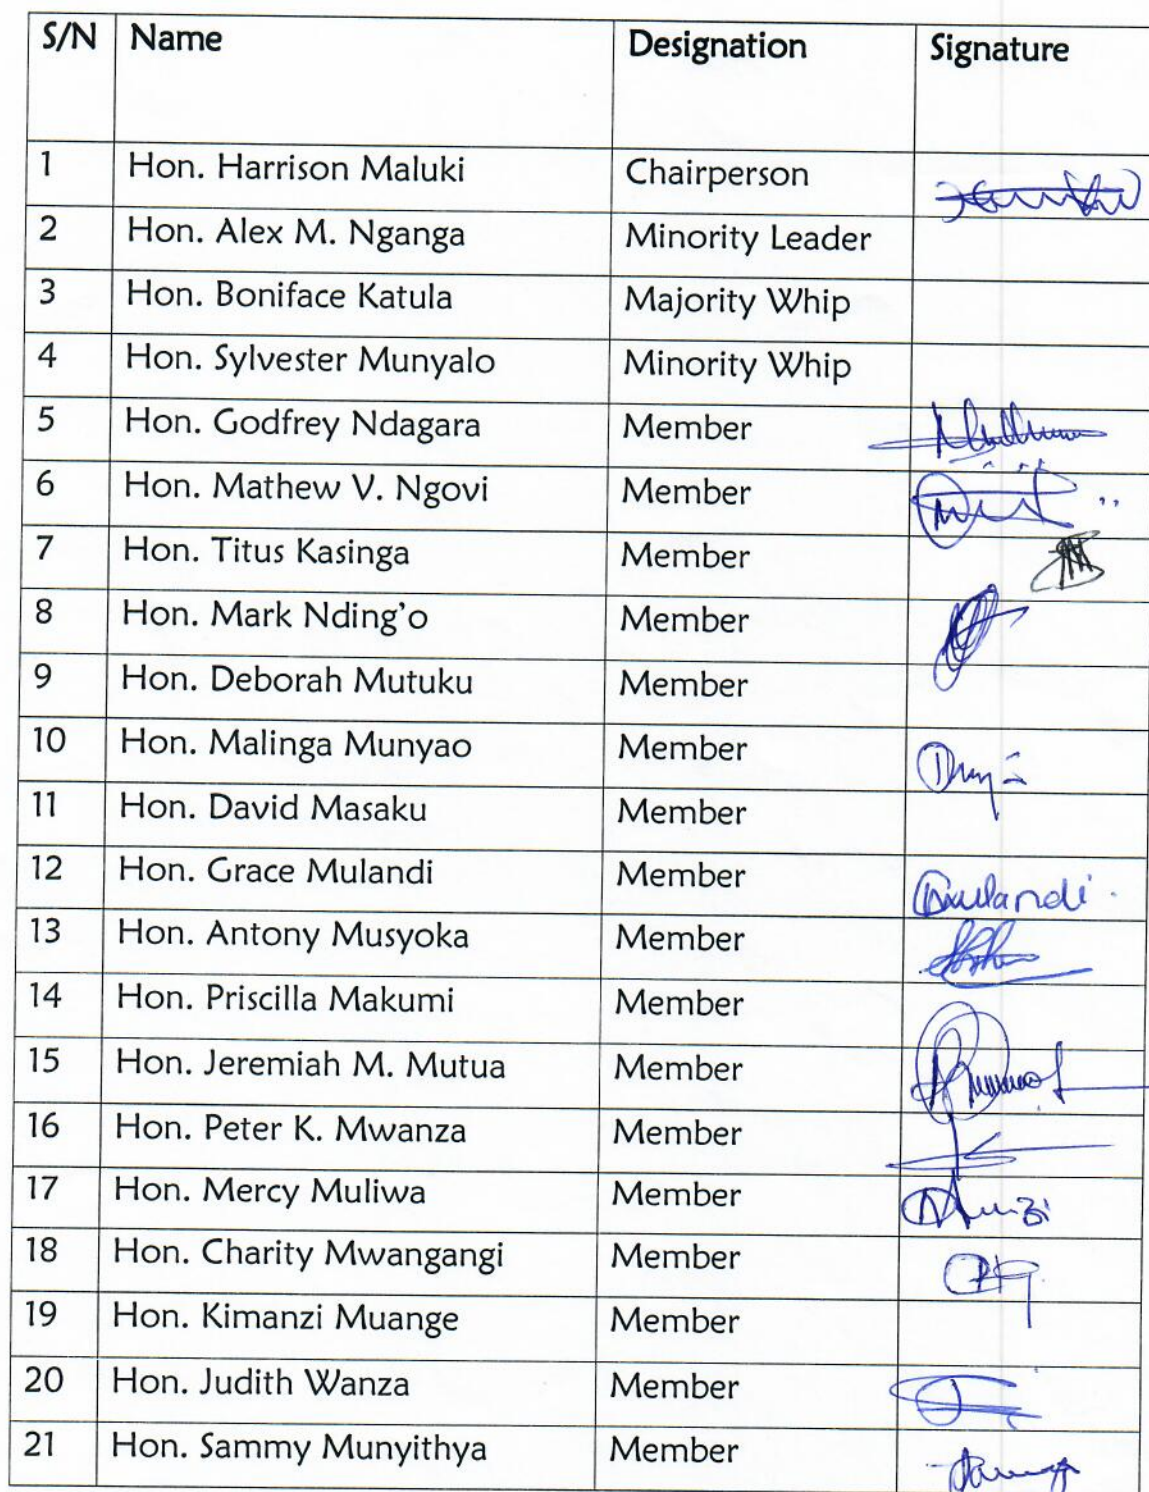 S/N Name Designation Signature
1 Hon. Harrison Maluki Chairperson
2 Hon. Alex M. Nganga Minority Leader
3 Hon. Boniface Katula Majority Whip
4 Hon. Sylvester Munyalo Minority Whip
5 Hon. Godfrey Ndagara Member
6 Hon. Mathew V. Ngovi Member
7 Hon. Titus Kasinga Member
8 Hon. Mark Nding'o Member
9 Hon. Deborah Mutuku Member
10 Hon. Malinga Munyao Member
11 Hon. David Masaku Member
12 Hon. Grace Mulandi Member
13 Hon. Antony Musyoka Member
14 Hon. Priscilla Makumi Member
15 Hon. Jeremiah M. Mutua Member
16 Hon. Peter K. Mwanza Member
17 Hon. Mercy Muliwa Member
18 Hon. Charity Mwangangi Member
19 Hon. Kimanzi Muange Member
20 Hon. Judith Wanza Member
21 Hon. Sammy Munyithya Member